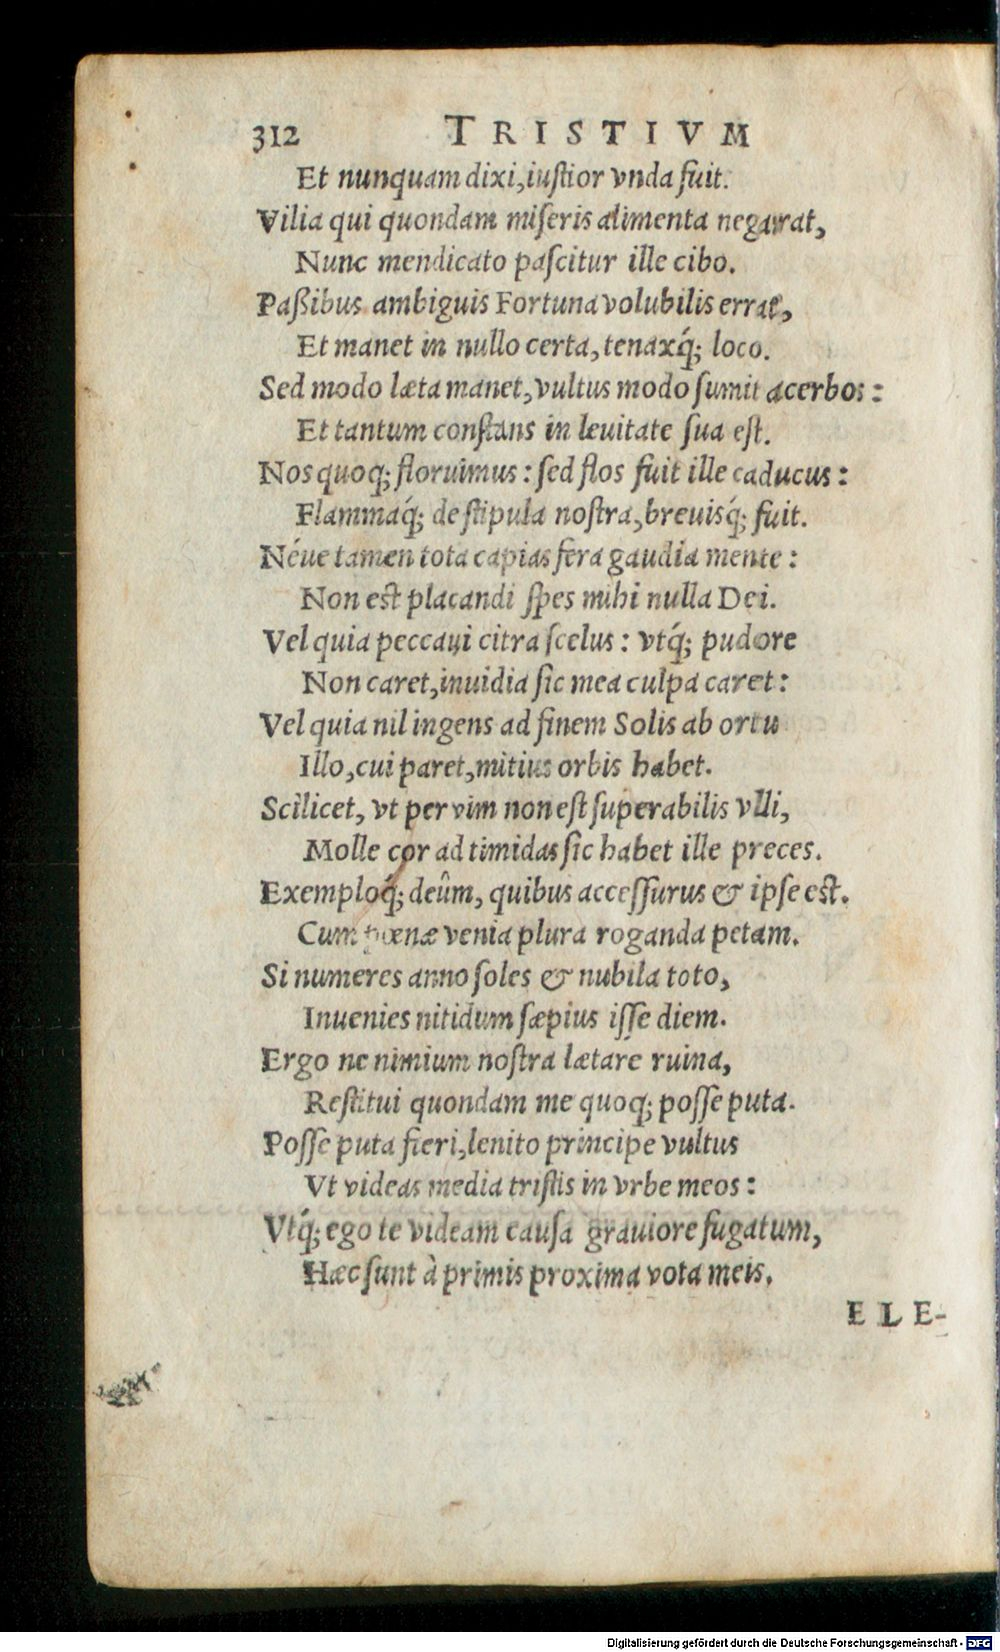 312 TRISTIVM
Et nunquam dixi, iuſtior vnda fuit.
Vilia qui quondam miſeris alimenta negarat,
Nunc mendicato paſcitur ille cibo.
Paßibus ambiguis Fortuna volubilis errat,
Et manet in nullo certa, tenaxq́; loco.
Sed modo læta manet, vultus modo ſumit acerbos:
Et tantum conſtans in leuitate ſua eſt.
Nos quoq; floruimus: ſed flos fuit ille caducus:
Flammaq́; de ſtipula noſtra, breuisq́; fuit.
Néue tamen tota capias fera gaudia mente:
Non eſt placandi ſpes mihi nulla Dei.
Vel quia peccaui citra ſcelus: vtq́; pudore
Non caret, inuidia ſic mea culpa caret:
Vel quia nil ingens ad finem Solis ab ortu
Illo, cui paret, mitius orbis habet.
Scilicet, vt per vim non eſt ſuperabilis vlli,
Molle cor ad timidas ſic habet ille preces.
Exemploq́; deûm, quibus acceſſurus & ipſe eſt.
Cum pœnæ venia plura roganda petam.
Si numeres anno ſoles & nubila toto,
Inuenies nitidum ſæpius iſſe diem.
Ergo ne nimium noſtra lætare ruina,
Reſtitui quondam me quoq; poſſe puta.
Poſſe puta fieri, lenito principe vultus
Vt videas media triſtis in vrbe meos:
Vtq́; ego te videam cauſa grauiore fugatum,
Hæc ſunt à primis proxima vota meis.
ELE-
Digitalisierung gefördert durch die Deutsche Forschungsgemeinschaft - DFG